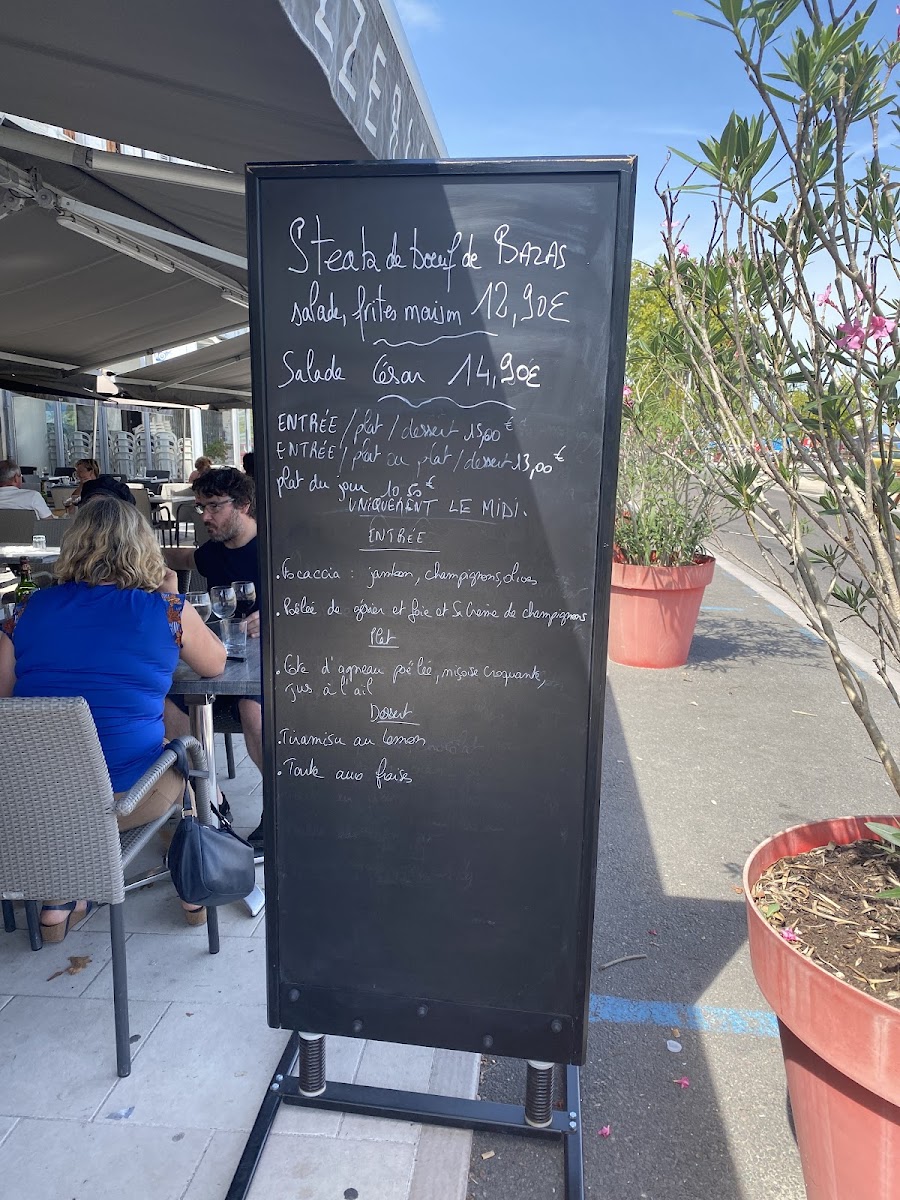 ZZERIA
Steak de boeuf de BAZAS
salade, frites maison 12,90€
Salade César 14,90€
ENTRÉE / plat / dessert 15,00€
ENTRÉE / plat ou plat / dessert 13,00€
plat du jour 10,50€
UNIQUEMENT LE MIDI.
ENTRÉE
. Focaccia : jambon, champignons, olives
. Poêlée de gésier et foie et sa crème de champignons
Plat
. Côte d'agneau poêlée, niçoise croquante,
jus à l'ail
Dessert
. Tiramisu au
. Tarte aux fraises